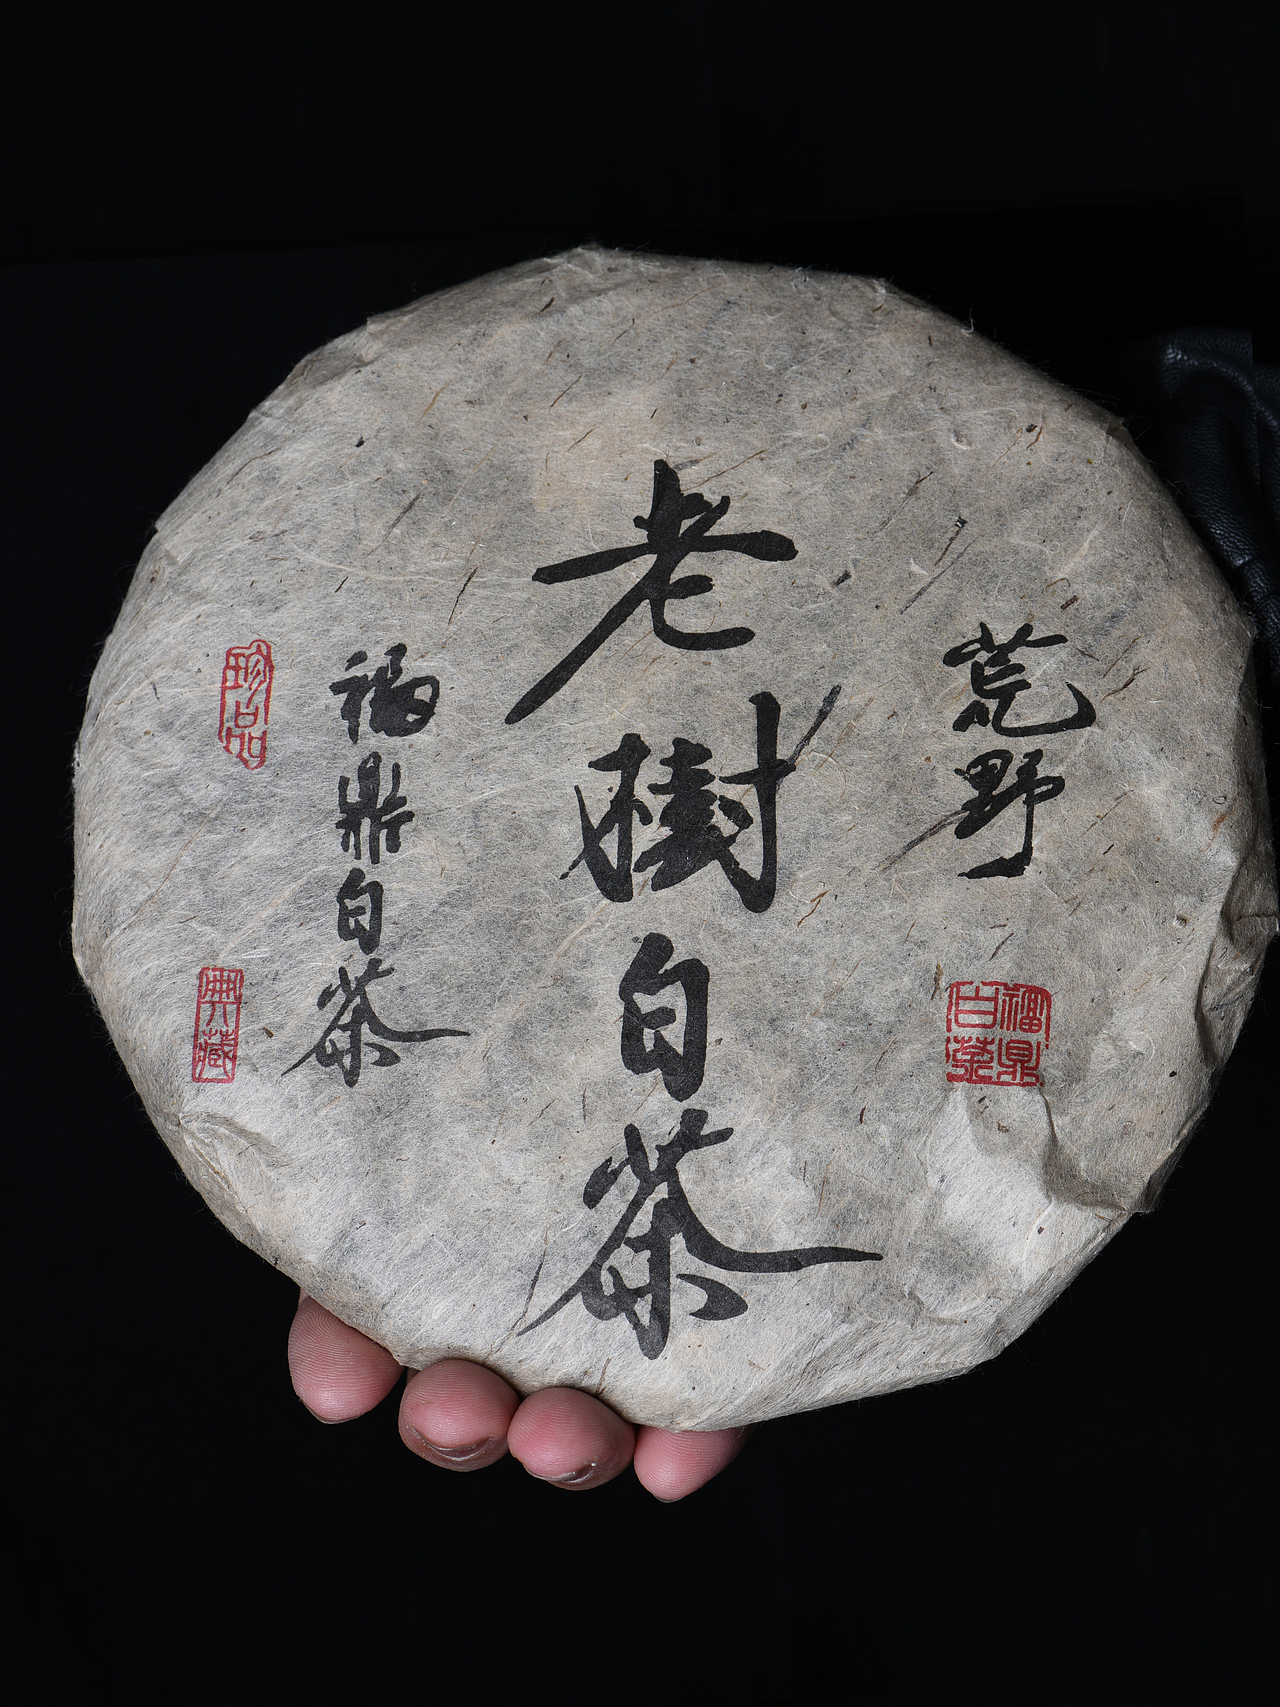 荒野
福鼎
白茶
老樹白茶
福鼎白茶
珍品
典藏